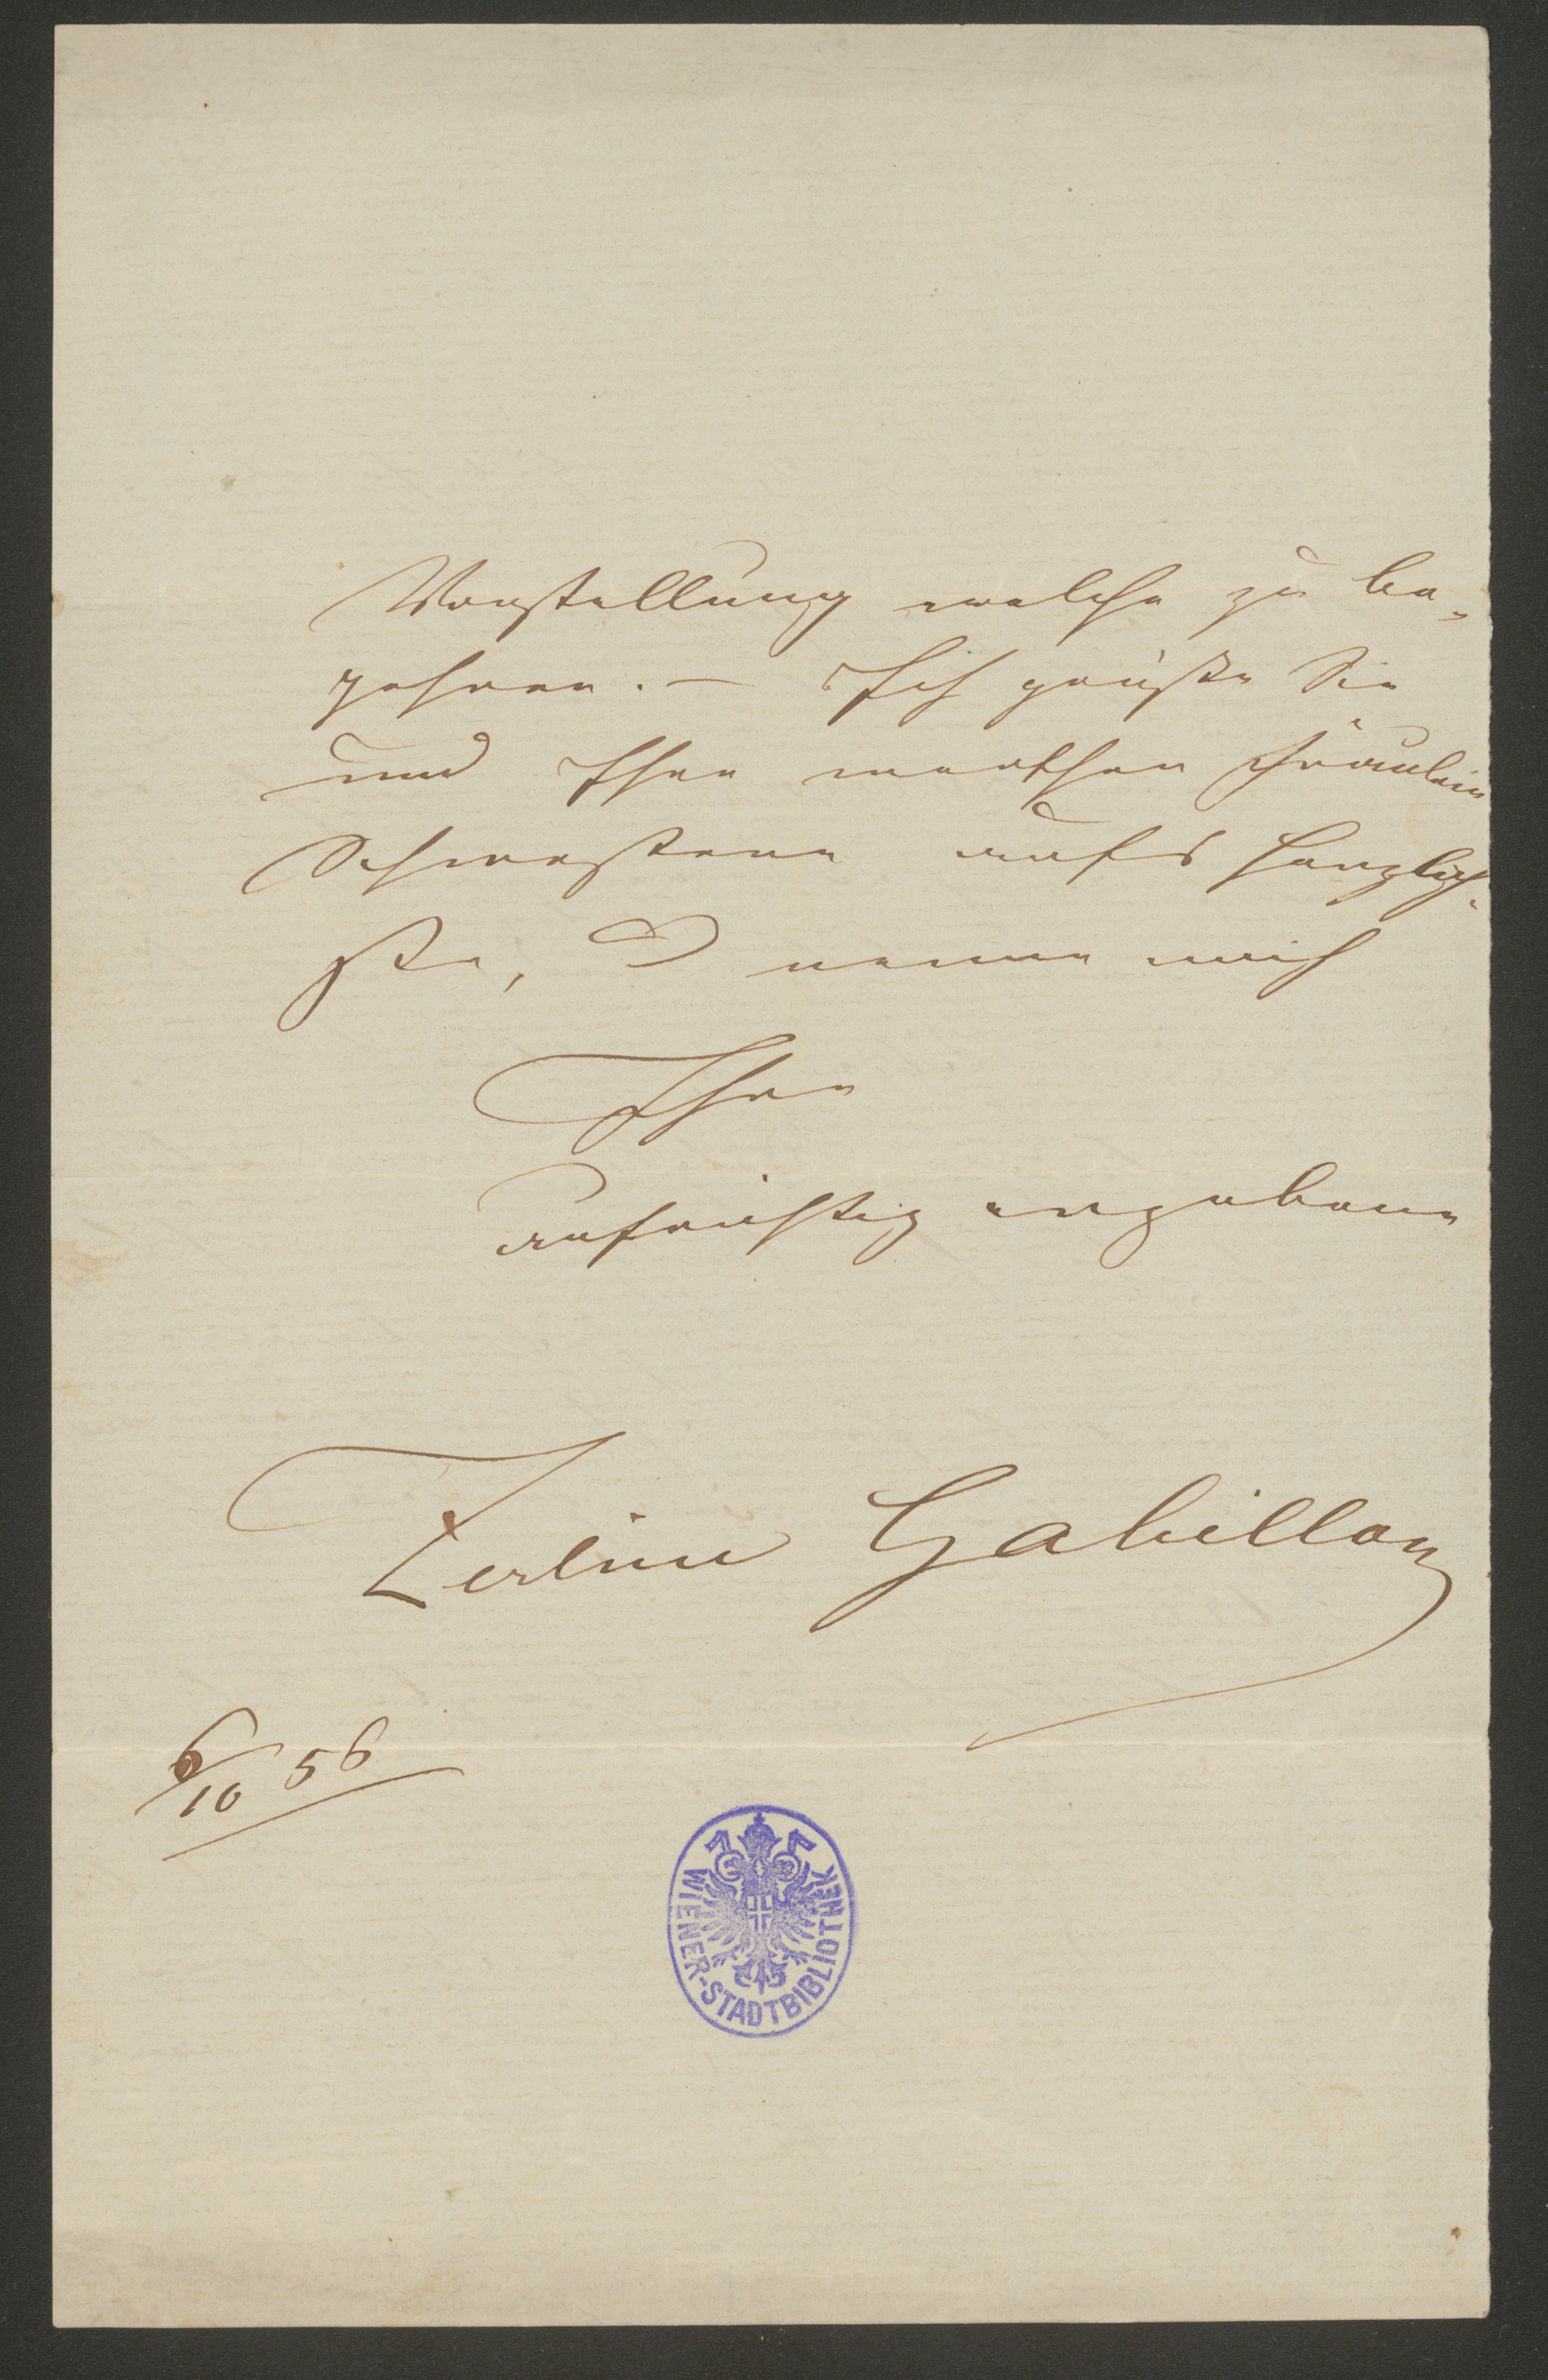 Vorstellung welche zu be„
gehren. — Ich grüße Sie
und Ihre werthen Fräulein
Schwestern aufs herzlich„
ste, & nenne mich
Ihre
aufrichtig ergebene
Zerline Gabillon
6/10 56
WIENER-STADTBIBLIOTHEK